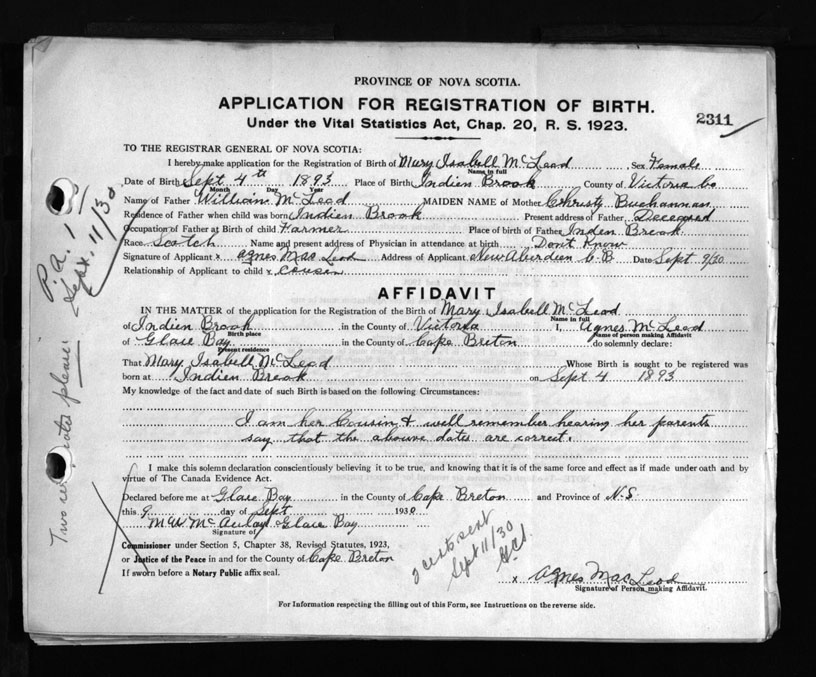 PROVINCE OF NOVA SCOTIA.
APPLICATION FOR REGISTRATION OF BIRTH.
2311
Under the Vital Statistics Act, Chap. 20, R. S. 1923.
TO THE REGISTRAR GENERAL OF NOVA SCOTIA:
I hereby make application for the Registration of Birth of Mary Isabell McLeod Sex Female
Name in full
Date of Birth Sept 4th 1893 Place of Birth Indien Brook County of Victoria Co
Month Day Year
Name of Father William McLeod MAIDEN NAME of Mother Christy Buchannan
Residence of Father when child was born Indien Brook Present address of Father Deceased
Occupation of Father at Birth of child Farmer Place of birth of Father Indien Brook
Race Scotch Name and present address of Physician in attendance at birth Don't Know
Signature of Applicant x Agnes Mac Leod Address of Applicant New Aberdien C.B. Date Sept 9/30
Relationship of Applicant to child x Cousen
AFFIDAVIT
IN THE MATTER of the application for the Registration of the Birth of Mary Isabell McLeod
Name in full
of Indien Brook in the County of Victoria I, Agnes McLeod
Birth place Name of person making Affidavit
of Glace Bay in the County of Cape Breton do solemnly declare:
Present residence
That Mary Isabell McLeod Whose Birth is sought to be registered was
born at Indien Brook on Sept 4 1893
My knowledge of the fact and date of such Birth is based on the following Circumstances:
I am her Cousin & well remember hearing her parents
say that the abouve dates are correct.
I make this solemn declaration conscientiously believing it to be true, and knowing that it is of the same force and effect as if made under oath and by
virtue of The Canada Evidence Act.
Declared before me at Glace Bay in the County of Cape Breton and Province of N.S
this 9 day of Sept 1930
M W McAulay Glace Bay
Signature of
Commissioner under Section 5, Chapter 38, Revised Statutes, 1923,
or Justice of the Peace in and for the County of Cape Breton
If sworn before a Notary Public affix seal.
x Agnes Mac Leod
Signature of Person making Affidavit.
For Information respecting the filling out of this Form, see Instructions on the reverse side.
P.A.
Sept. 11/30
Two please
2 certs sent
Sept 11/30